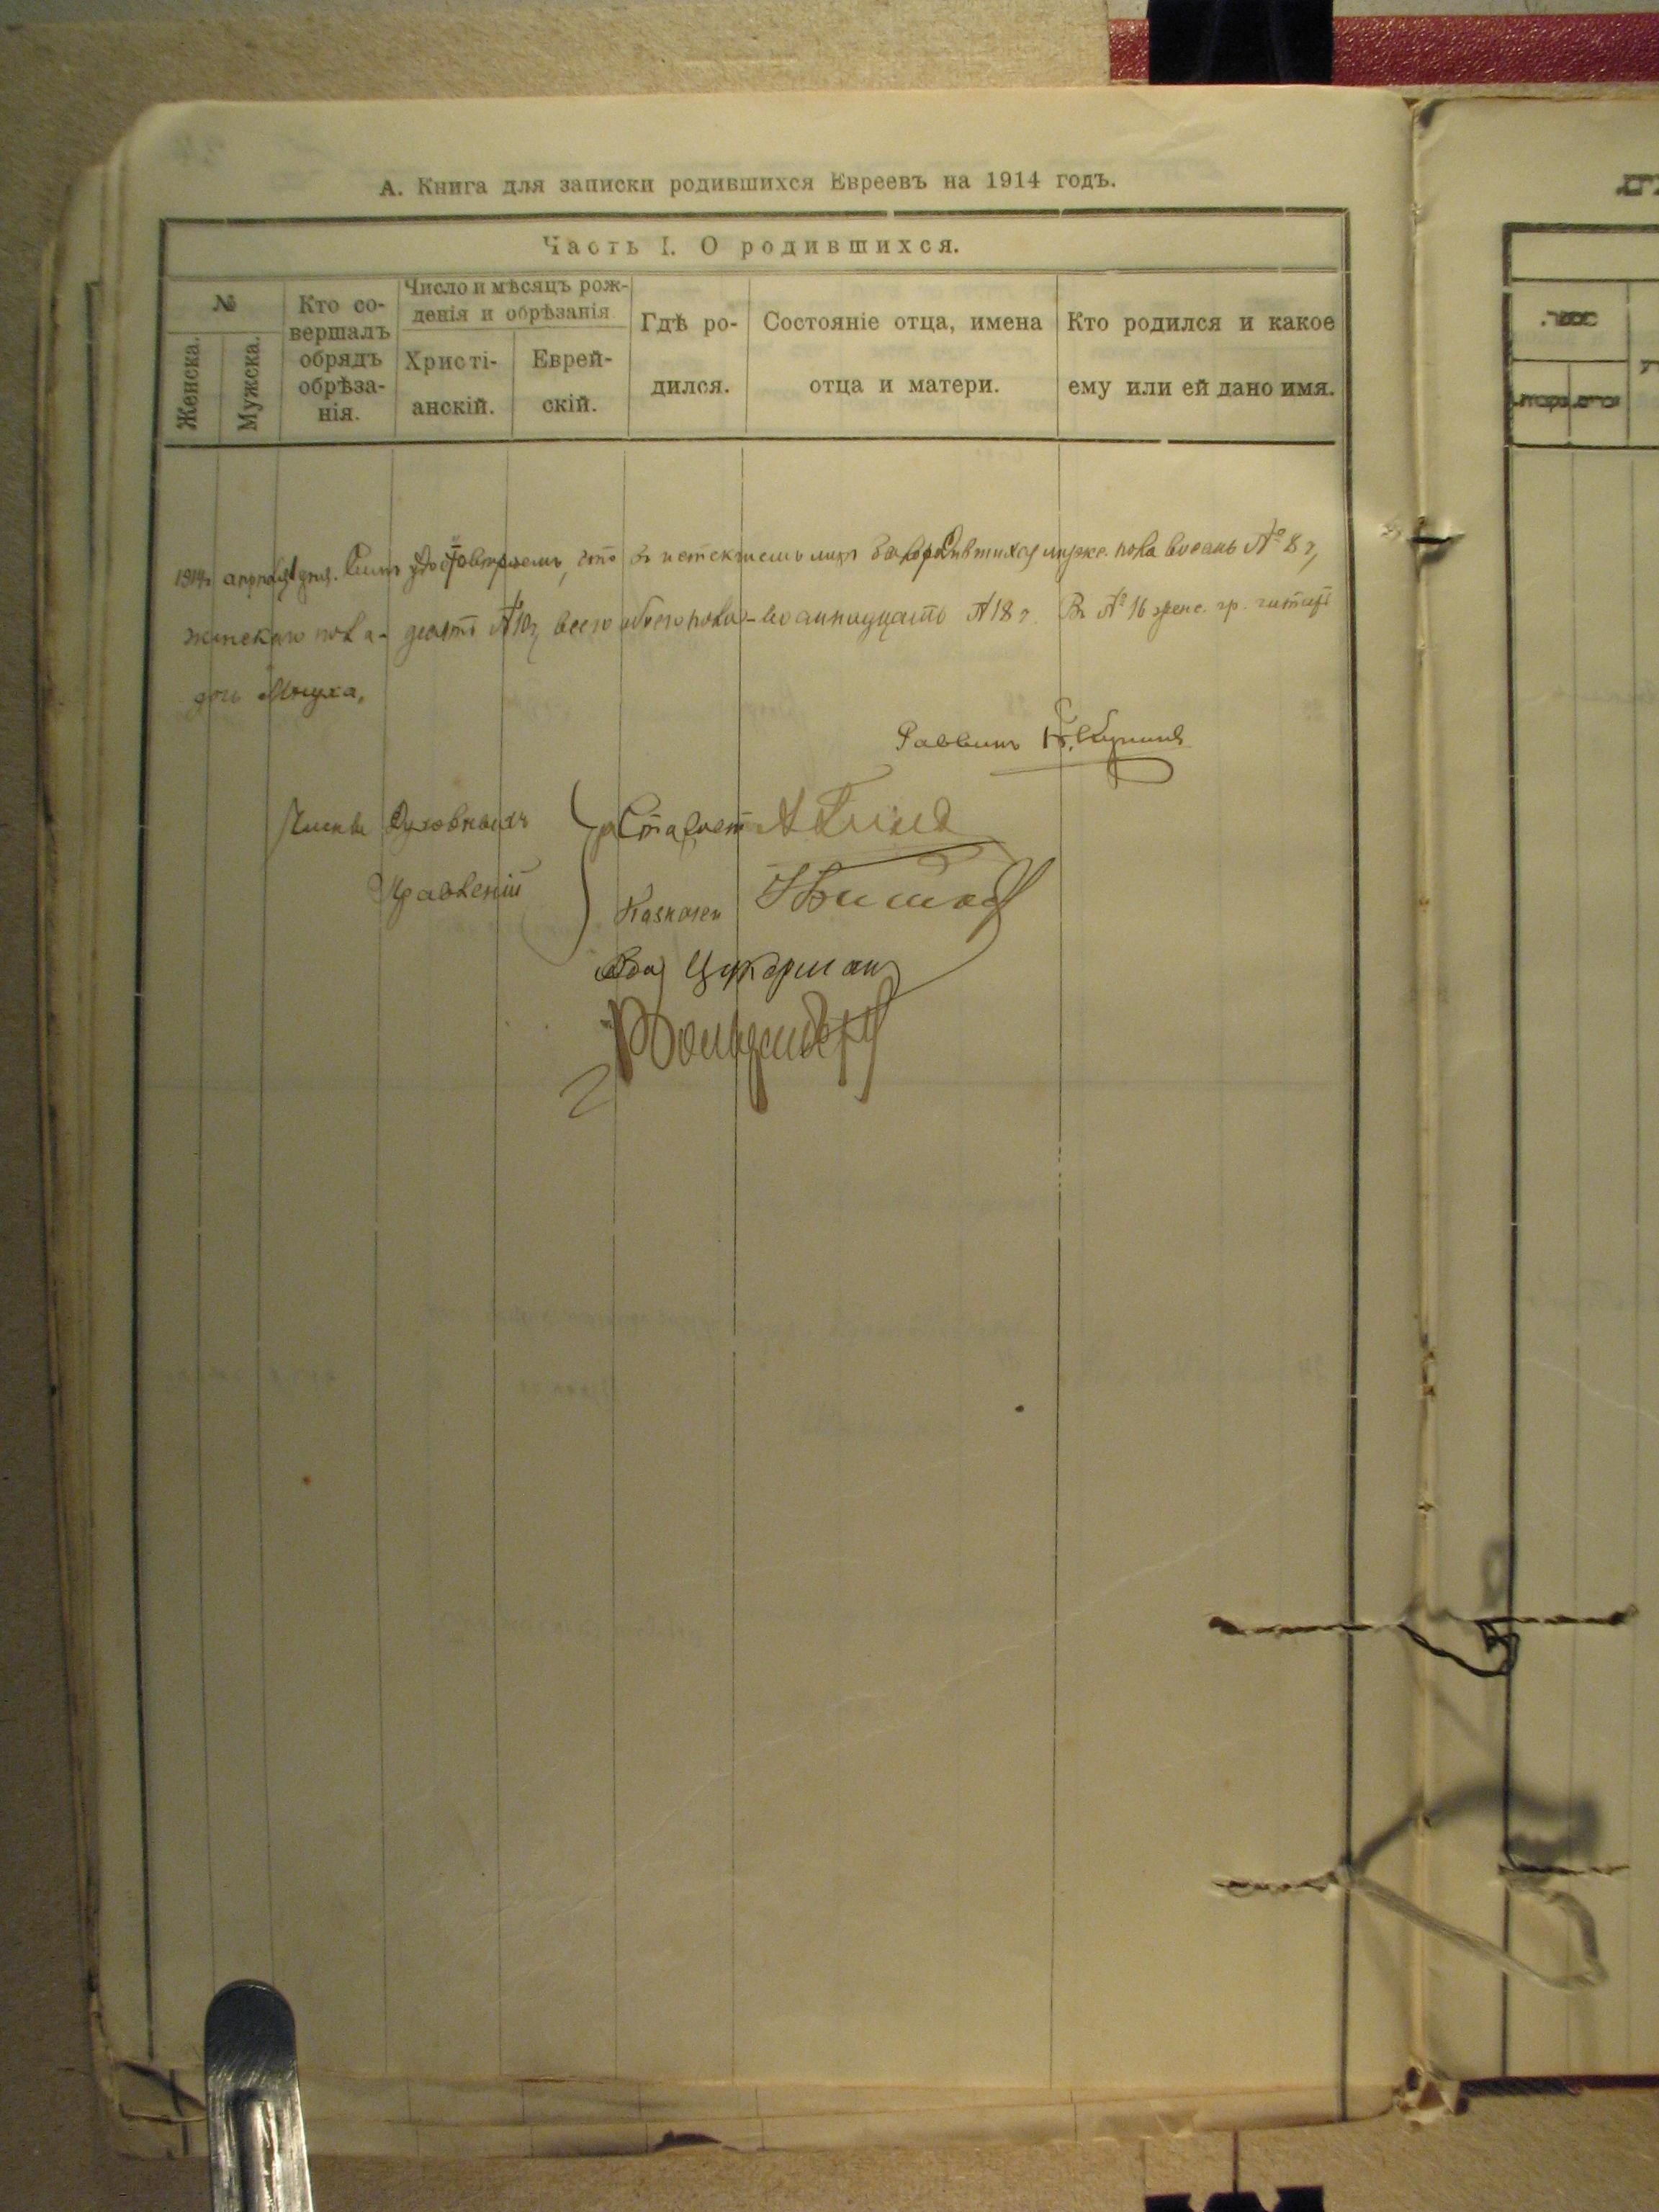 А. Книга для записки родившихся Евреевъ на 1914 годъ.
Часть I. О родившихся.
№
Женска.
Мужска.
Кто со-
вершалъ
обрядъ
обрѣза-
нія.
Число и мѣсяцъ рож-
денія и обрѣзанія
Христі-
анскій.
Еврей-
скій.
Гдѣ ро-
дился.
Состояніе отца, имена
отца и матери.
Кто родился и какое
ему или ей дано имя.
1914 г. апрѣля 1 дня. Симъ удостовѣряемъ, что въ истекшемъ мцѣ родившихся мужс. пола восемь № 8,
женскаго пола - десять № 10, всего обоего пола - восемнадцать № 18. Въ № 16 женс. гр. читать
дочь Мнуха.
Раввинъ
Члены Духовныхъ
Правленій
Староста
Казначей
Цукерманъ